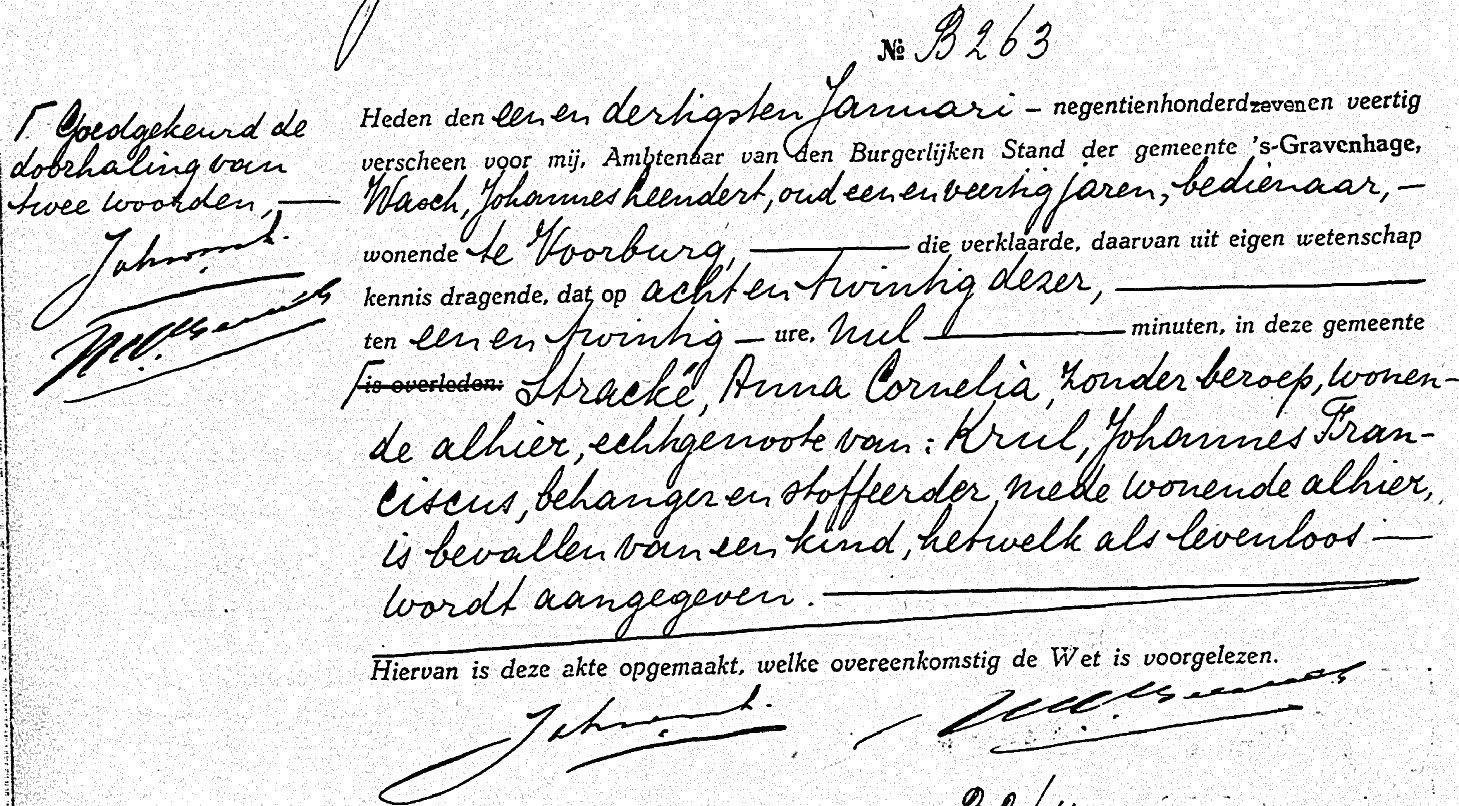 № B 263
Γ. Goedgekeurd de
doorhaling van
twee woorden,
Heden den een en dertigsten Januari – negentienhonderdzevenen veertig
verscheen voor mij, Ambtenaar van den Burgerlijken Stand der gemeente 's-Gravenhage,
Wasch, Johannes Leendert, oud een en veertig jaren, bedienaar, –
wonende te Voorburg, die verklaarde, daarvan uit eigen wetenschap
kennis dragende, dat op acht en twintig dezer,
ten een en twintig – ure, nul minuten, in deze gemeente
Γ is overleden: Stracké, Anna Cornelia, zonder beroep, wonen-
de alhier, echtgenoote van: Krul, Johannes Fran-
ciscus, behanger en stoffeerder, mede wonende alhier,
is bevallen van een kind, hetwelk als levenloos –
wordt aangegeven.
Hiervan is deze akte opgemaakt, welke overeenkomstig de Wet is voorgelezen.